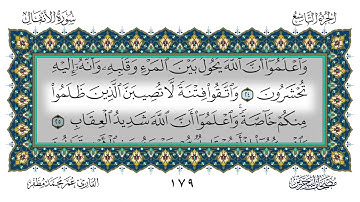 سورة الأنفال
الجزء التاسع
وَٱعْلَمُوٓا۟ أَنَّ ٱللَّهَ يَحُولُ بَيْنَ ٱلْمَرْءِ وَقَلْبِهِۦ وَأَنَّهُۥٓ إِلَيْهِ
تُحْشَرُونَ ٢٤ وَٱتَّقُوا۟ فِتْنَةً لَّا تُصِيبَنَّ ٱلَّذِينَ ظَلَمُوا۟
مِنكُمْ خَآصَّةً وَٱعْلَمُوٓا۟ أَنَّ ٱللَّهَ شَدِيدُ ٱلْعِقَابِ ٢٥
القارئ عمر محمد مظفر
١٧٩